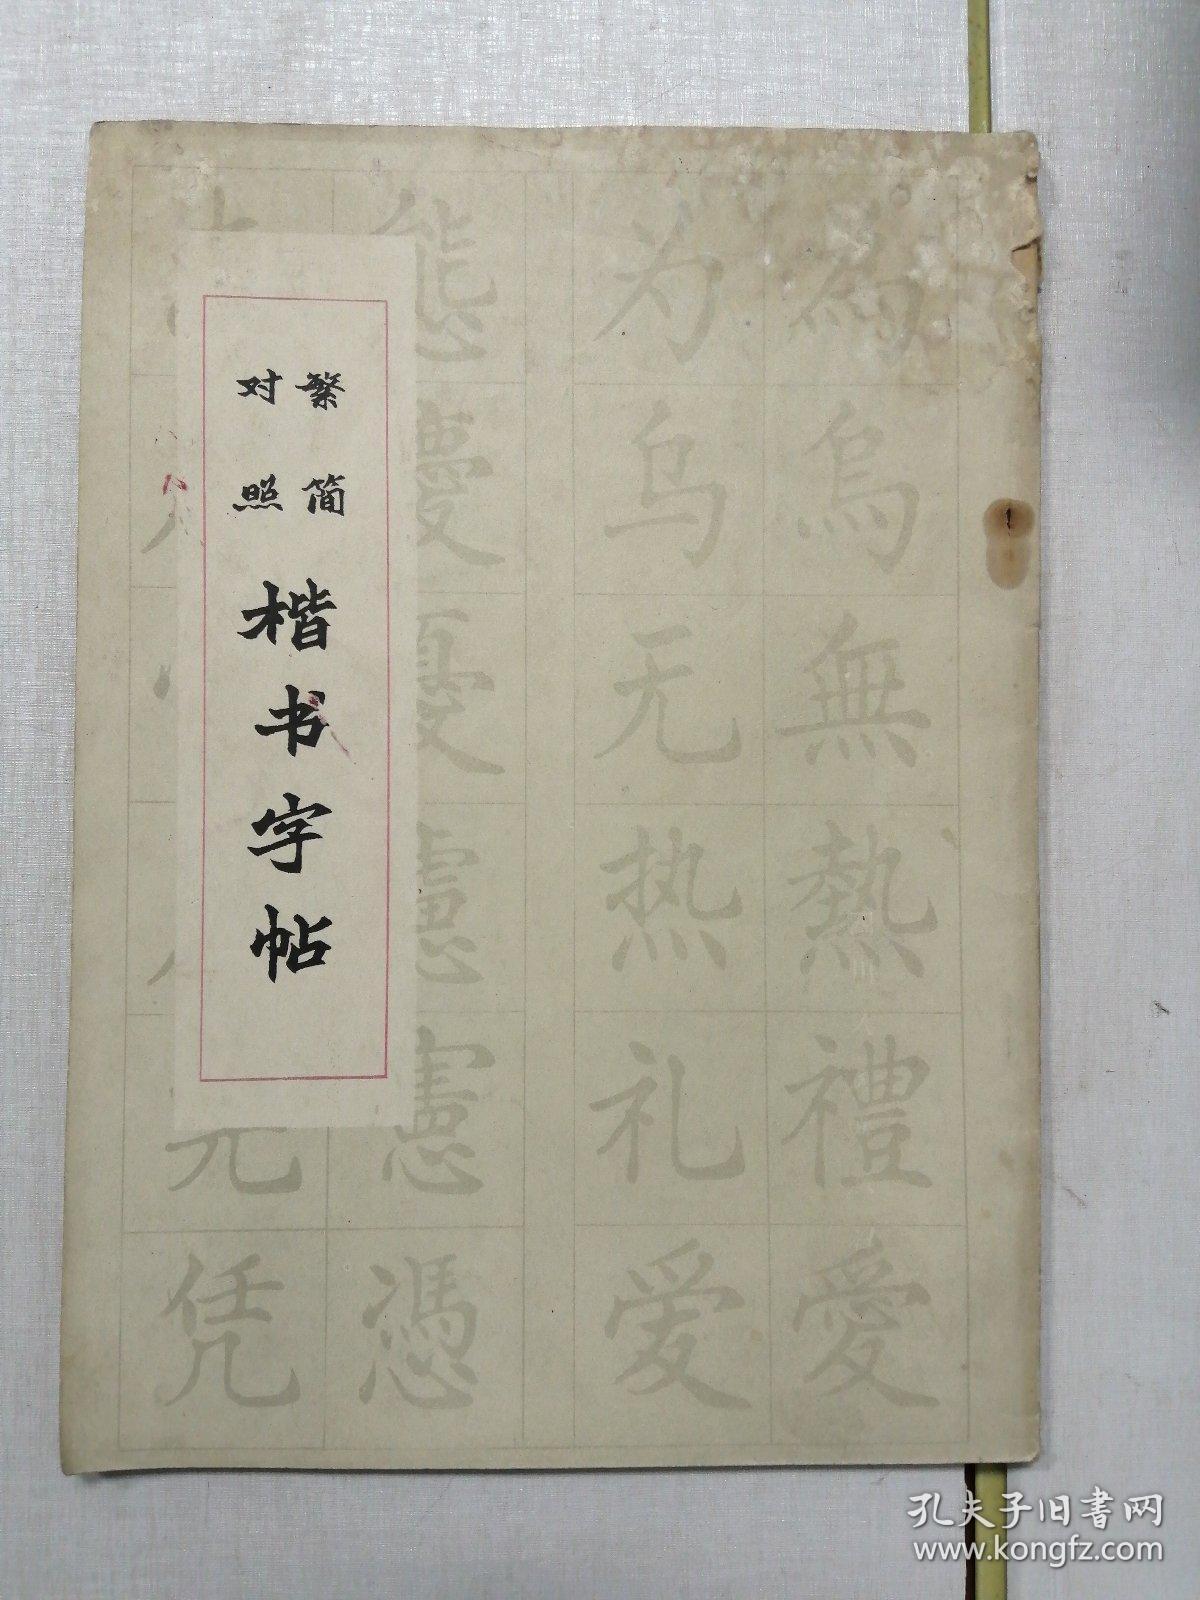 繁简
对照
楷书字帖
為烏無熱禮愛
为乌无热礼爱
態慶憂慮憲憑
凭
孔夫子旧書网
www.kongfz.com